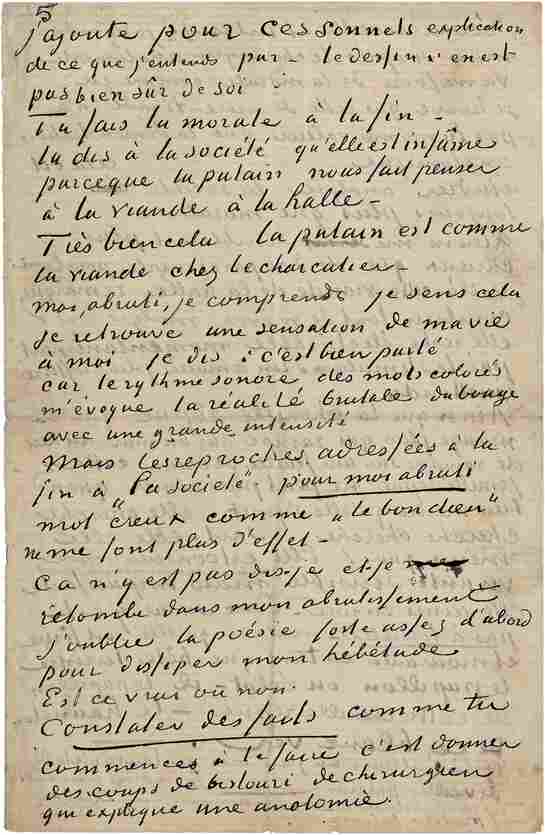 5
J'ajoute pour ces sonnets explication
de ce que j'entends par – le dessin n'en est
pas bien sûr de soi.
Tu fais la morale à la fin –
tu dis à la société qu'elle est infâme
parceque la putain nous fait penser
à la viande à la halle –
Très bien cela la putain est comme
la viande chez le charcutier –
moi, abruti, je comprends je sens cela
je retrouve une sensation de ma vie
à moi je dis : c'est bien parlé
car le rythme sonore des mots colorés
m'évoque la réalité brutale du bouge
avec une grande intensité
Mais les reproches adressées à la
fin à „la société" pour moi abruti
mot creux comme „le bon dieu"
ne me font plus d'effet –
Ca n'y est pas dis-je et je
retombe dans mon abrutissement
j'oublie la poésie forte assez d'abord
pour dissiper mon hébétude
Est ce vrai ou non.
Constater des faits comme tu
commences à le faire c'est donner
des coups de bistouri de chirurgien
qui explique une anatomie.